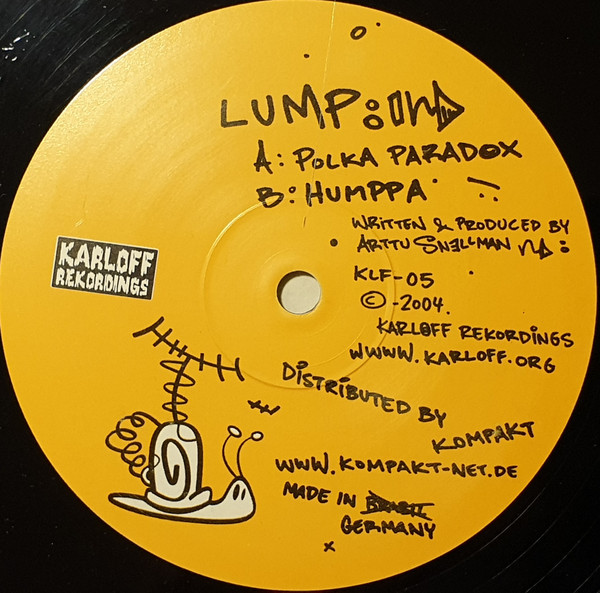 LUMP
A: POLKA PARADOX
B: HUMPPA
WRITTEN & PRODUCED BY
ARTTU SNELLMAN
KLF-05
© -2004.
KARLOFF REKORDINGS
WWWW.KARLOFF.ORG
KARLOFF
REKORDINGS
DISTRIBUTED BY
KOMPAKT
WWW.KOMPAKT-NET.DE
MADE IN BRASIL
GERMANY